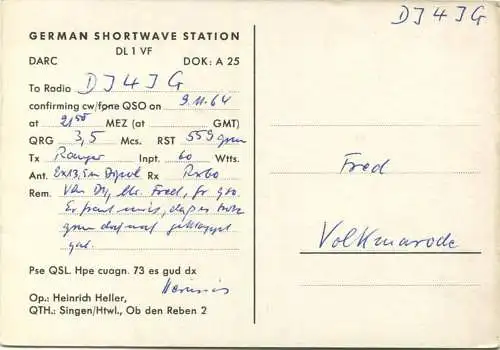 GERMAN SHORTWAVE STATION
DL 1 VF
DARC DOK: A 25
To Radio DJ4JG
confirming cw/fone QSO on 9.11.64
at 21⁵⁰ MEZ (at GMT)
QRG 3,5 Mcs. RST 559
Tx Ranger Inpt. 60 Wtts.
Ant. 2x13,5m Dipol Rx Rx60
Rem. Fred, fr qso.
Er freut mich, daß es trotz
qrm doch noch geklappt
hat.
Pse QSL. Hpe cuagn. 73 es gud dx
Heinrich
Op.: Heinrich Heller,
QTH.: Singen/Htwl., Ob den Reben 2
DJ4JG
Fred
Volkmarode